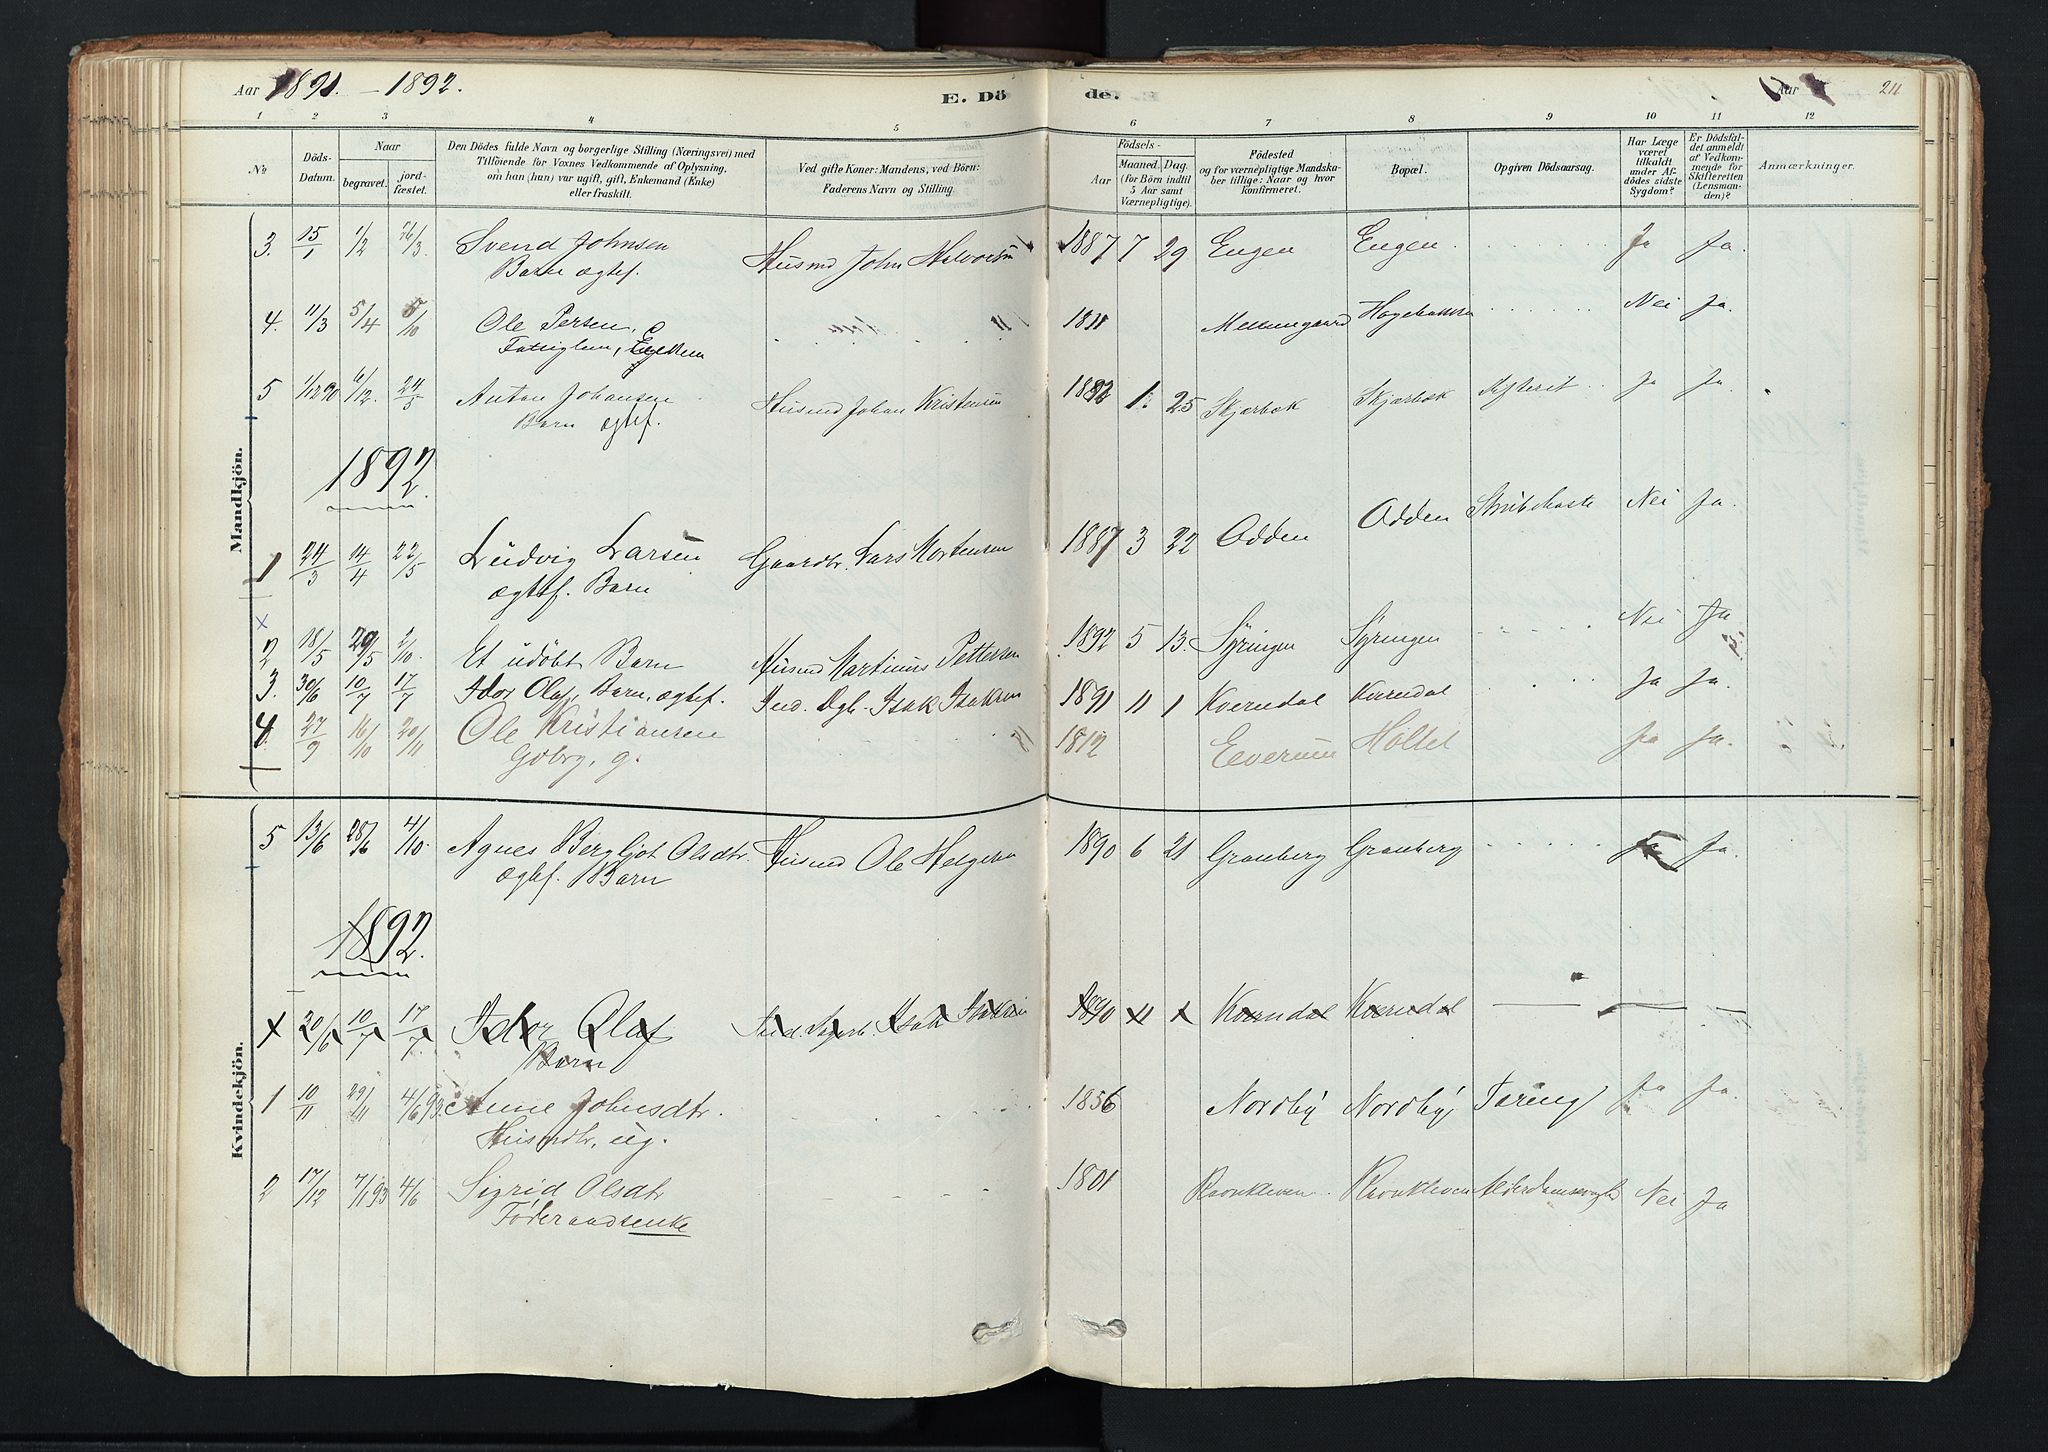 Aar 1891. - 1892.
E. Dö
de.
Aar
211
1 2 3 4 5 6 7 8 9 10 11 12
No
Döds-Datum.
Naar
begravet.
jord-fæstet.
Den Dödes fulde Navn og borgerlige Stilling (Næringsvei) med
Tilföiende for Voxnes Vedkommende af Oplysning,
om han (hun) var ugift, gift, Enkemand (Enke)
eller fraskilt.
Ved gifte Koner: Mandens, ved Börn:
Faderens Navn og Stilling.
Födsels-
Aar
Maaned. Dag.
(for Börn indtil
5 Aar samt
Værnepligtige).
Födested
og for værnepligtige Mandska-
ber tillige: Naar og hvor
konfirmeret.
Bopæl.
Opgiven Dödsaarsag.
Har Læge
været
tilkaldt
under Af-
dödes sidste
Sygdom?
Er Dödsfal-
det anmeldt
af Vedkom-
mende for
Skifteretten
(Lensman-
den)?
Anmærkninger.
Mandkjön.
3. 15/1 1/2 26/3. Svend Johnsen Husmd John Halvorsen 1887 7 29 Engen Engen. Ja Ja.
Barn ægtef.
4. 11/3 5/4 5/10 Ole Persen, 1811 Nei Ja.
Fattiglem,
5 1/12 90 6/12. 24/5 Anton Johansen Husmd Johan Kristensen 1. 25 Skjærbæk Skjærbæk Ja Ja.
Barn ægtef.
1892.
1 24/3 14/4 22/5 Ludvig Larsen Gaardbr. Lars Mortensen 1887 3 22 Odden Odden Strubehoste Nei Ja.
ægtef. Barn
2 18/5 29/5 2/10. Et udöbt Barn Husmd Martinus Pettersen 1892 5 13. Syringen Syringen Nei Ja
3. 30/6 10/7 17/7 Idor Olaf, Barn, ægtef. Ind. Dgl. Isak Isaksen 1891 11 1 Kverndal Kverndal Ja Ja.
4 27/9 16/10 20/11 Ole Kristiansen 1812 Elverum Holtet Ja Ja.
Gbrg, g.
Kvindekjön.
5 13/6 28/6 4/10. Agnes Bergljot Olsdtr Husmd Ole Helgesen 1890 6 21 Granberg Granberg Ja Ja.
ægtef. Barn
1892.
20/6 10/7 17/7 Idor Olaf Ind. Isak Isaksen 1890 11 1 Kverndal Kverndal
Barn
1 10/11 29/11 4/6 93. Anne Johnsdtr. 1856 Nordby Nordby Tæring Ja Ja.
Husmdtr, ug.
2 17/12 7/1 93 4/6 Sigrid Olsdtr 1801 Ravnkleven. Ravnkleven Alderdomssvaghed Nei Ja
Föderaadsenke